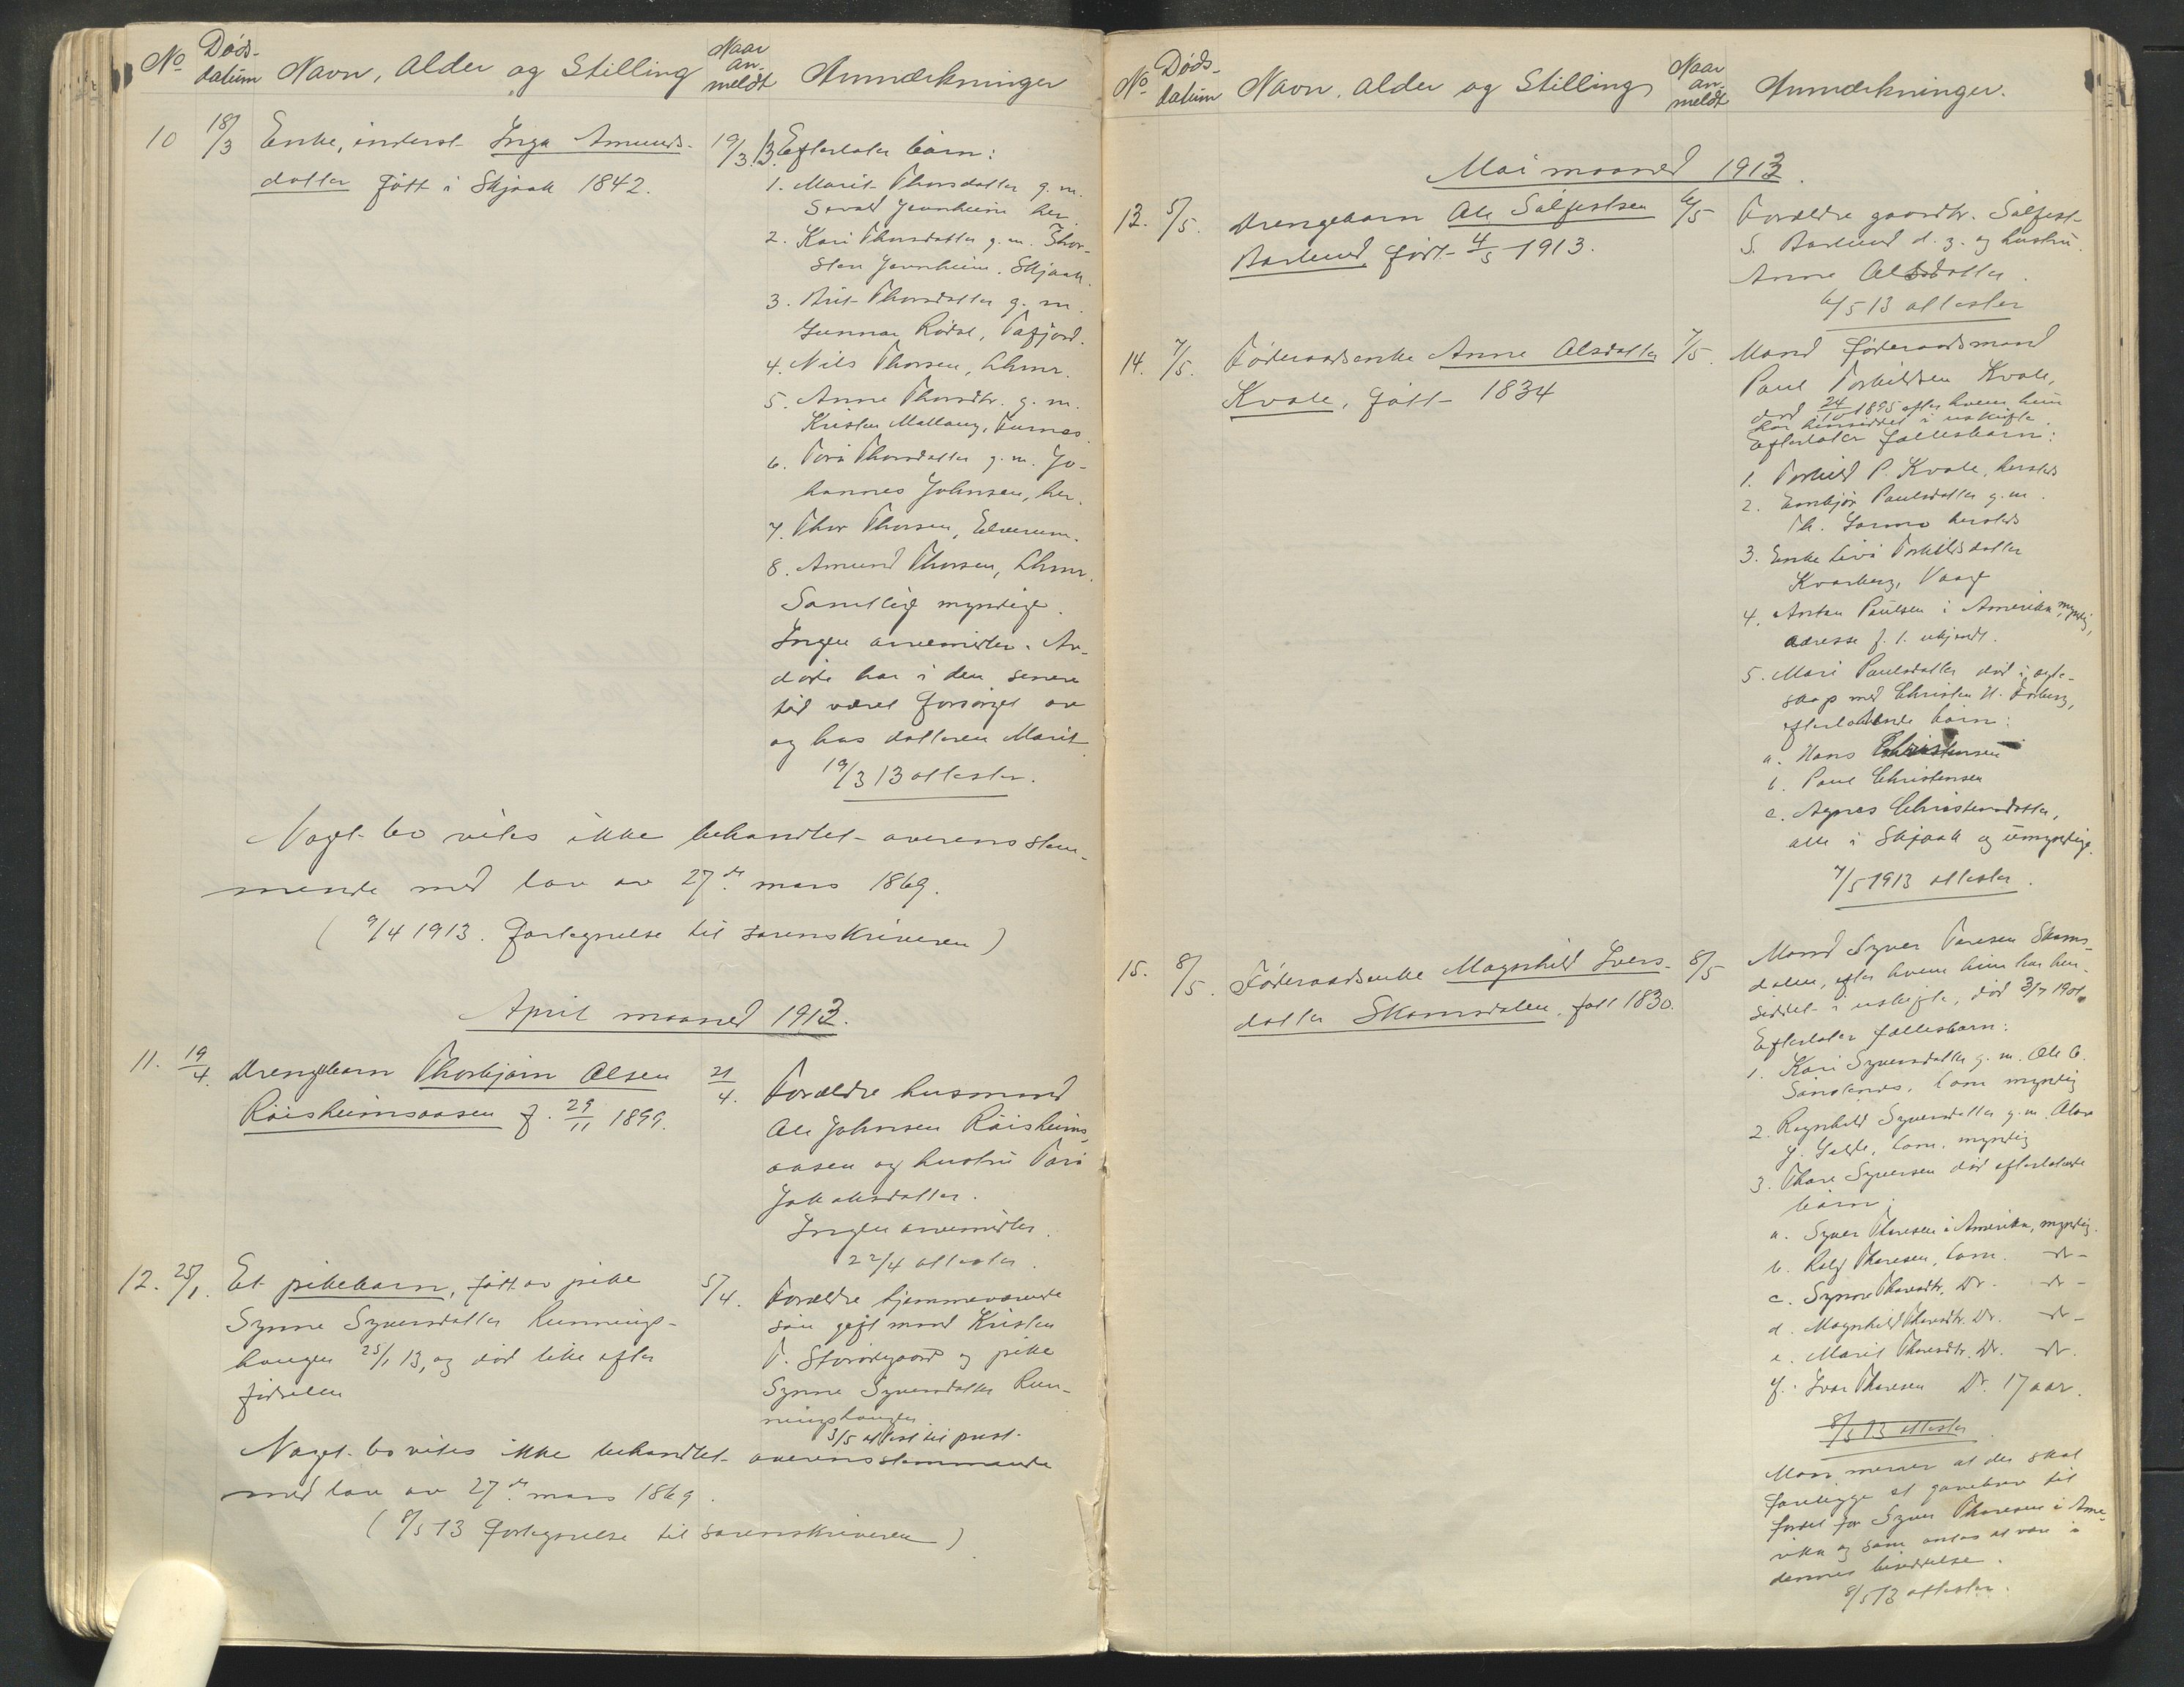 No Døds- datum Navn, Alder og Stilling Naar an- meldt Anmærkninger
10 18/3 Enke, inderst Inga Amunds-
datter født i Skjaak 1842.
19/3 13 Efterlater børn:
1. Marit Thorsdatter g. m.
her.
2. Kari Thorsdatter g. m. Thor-
sten Jonnheim. Skjaak.
3. Thorsdatter g. m.
Gunnar Rødal, Tafjord.
4. Nils Thorsen, Lhmr.
5. Anne Thorsdtr. g. m.
Kristen Furnes
6. Thorsdatter g. m. Jo-
hannes Johnsen, her.
7. Thor Thorsen, Elverum.
8. Amund Thorsen, Lhmr.
Samtlige myndige.
Ingen arvemidler. Av-
døde har i den senere
tid været forsørget av
og hos datteren Marit
19/3 13 attester.
Noget bo vites ikke behandlet overensstem-
mende med lov av 27de mars 1869.
(9/4 1913. Fortegnelse til sorenskriveren)
April maaned 1913.
11. 19/4. Drengebarn Thorbjørn Olsen
Røisheimsaasen f. 29/11 1899.
21/4. Forældre husmand
Ole Johnsen Røisheims-
aasen og hustru
Jakobsdatter.
Ingen arvemidler.
22/4 attester.
12. 25/1. Et pikebarn, født av pike
Synne Syversdatter Runnings-
haugen 25/1 13, og død like efter
fødselen
5/4. Forældre hjemmeværende
søn gift mand Kristen
T. og pike
Synne Syversdatter Run-
ningshaugen
3/5 attest til prest.
Noget bo vites ikke behandlet overensstemmende
med lov av 27de mars 1869.
(8/5 13 Fortegnelse til sorenskriveren)
No Døds- datum Navn, Alder og Stilling Naar an- meldt Anmærkninger.
Mai maaned 1913.
13. 5/5. Drengebarn Ole Sølfestsen
født 4/5 1913.
6/5 Forældre gaardbr. Sølfest
S. d. y. og hustru
Anne Olsdatter.
6/5 13 attester
14. 7/5. Føderaadsenke Anne Olsdatter
Kvale, født 1834
7/5. Mand føderaadsmand
Paul Torkildsen Kvale,
død 24/10 1895 efter hvem hun
har hensiddet i uskifte.
Efterlater fællesbarn:
1. Torkild P. Kvale, hersteds
2. Paulsdatter g. m.
hersteds
3. Enke Torkildsdatter
Kvarberg, Vaage
4. Anton Paulsen i Amerika, myndig,
adresse f. t. ukjendt.
5. Mari Paulsdatter død i egte-
skap med Christen H.
efterlatende børn:
a. Hans Christensen
b. Paul Christensen
c. Agnes Christensdatter,
alle i Skjaak og umyndige.
7/5 1913 attester.
15. 8/5. Føderaadsenke Magnhild Ivers-
datter Skamsdalen, født 1830.
8/5 Mand Syver Toresen Skams-
dalen, efter hvem hun har hen-
siddet i uskifte, død 3/7 1901.
Efterlater fællesbarn:
1. Kari Syversdatter g. m. Ole O.
Lom myndig
2. Ragnhild Syversdatter g. m. Olav
Lom. myndig
3. Thore Syversen død efterlatende
børn:
a. Syver Thoresen i Amerika, myndig.
b. Thoresen, Lom. -dr-
c. Synne Thoresdtr. Dr. -dr-
d. Magnhild Thoresdtr. Dr. -dr-
e. Marit Thoresdtr. Dr. -dr.
f. Ivar Thoresen Dr. 17 aar.
8/5 13 attester.
Man mener at der skal
foreligge et gavebrev til
fordel for Syver Thoresen i Ame-
rika og som antas at være i
dennes besiddelse.
8/5 13 attester.